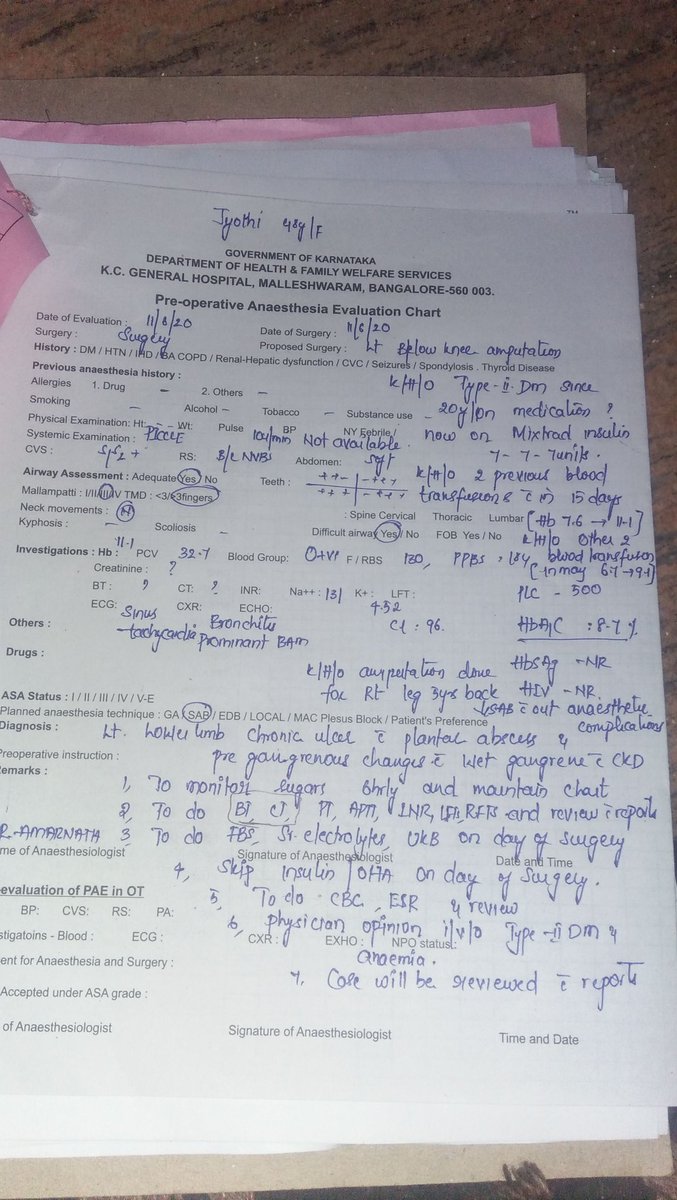 Jyothi 48y/F
GOVERNMENT OF KARNATAKA
DEPARTMENT OF HEALTH & FAMILY WELFARE SERVICES
K.C. GENERAL HOSPITAL, MALLESHWARAM, BANGALORE-560 003.
Pre-operative Anaesthesia Evaluation Chart
Date of Evaluation : 11/8/20 Date of Surgery : 11/8/20
Surgery : Surgery Proposed Surgery : Lt Below knee amputation
History : DM / HTN / IHD / BA COPD / Renal-Hepatic dysfunction / CVC / Seizures / Spondylosis . Thyroid Disease
Previous anaesthesia history : K/H/O Type-II-Dm since
Allergies 1. Drug – 2. Others –
Smoking – Alcohol – Tobacco – Substance use – 20y/on medication ?
Physical Examination: Ht: – Wt: Pulse BP NY Febrile / now on Mixtrad insulin
Systemic Examination : PICCLE 104/min Not available. 7-7-7units.
CVS : S1S2 + RS: B/L NVBS Abdomen: Soft K/H/O 2 previous blood
Airway Assessment : Adequate Yes / No Teeth : ++- -++ +++ -++ transfusions c in 15 days
Mallampatti : I/II/III/IV TMD : <3/>3fingers
Neck movements : N : Spine Cervical Thoracic Lumbar [Hb 7.6 → 11.1]
Kyphosis – Scoliosis – Difficult airway Yes / No FOB Yes / No K/H/O Other 2
Investigations : Hb : 11.1 PCV 32.7 Blood Group: O+ve F / RBS 130, PPBS : 184 blood transfusion
Creatinine : ? [in may 6.7→9.1]
BT : ? CT: ? INR: Na++ : 131 K+ : 4.52 LFT : PLC - 500
ECG: Sinus tachycardia CXR: Bronchitis Prominant BAM ECHO: Cl : 96. HbA1C : 8.7 %
Others :
Drugs : K/H/O amputation done HbsAg -NR
for Rt leg 3yrs back HIV -NR.
ASA Status : I / II / III / IV / V-E ↓SAB c out anaesthetic complications
Planned anaesthesia technique : GA / SAB / EDB / LOCAL / MAC Plesus Block / Patient's Preference
Diagnosis : Lt. Lower limb chronic ulcer c plantar abscess &
Preoperative instruction : pre gangrenous changes c Wet gangrene c CKD
emarks : 1, To monitor sugars 6hrly and maintain chart
2, To do BT, CT, PT, APTT, INR, LFT, RFTS and review c reports
R-AMARNATH 3, To do FBS, Sr. electrolytes, UKB on day of surgery
me of Anaesthesiologist Signature of Anaesthesiologist Date and Time
4, Skip insulin / OHA on day of surgery.
-evaluation of PAE in OT 5, To do CBC, ESR & review
BP: CVS: RS: PA:
6, Physician opinion i/v/o Type-II Dm &
stigatoins - Blood : ECG : CXR : EXHO : NPO status :
anaemia.
ent for Anaesthesia and Surgery :
7. Case will be reviewed c reports
Accepted under ASA grade :
of Anaesthesiologist Signature of Anaesthesiologist Time and Date